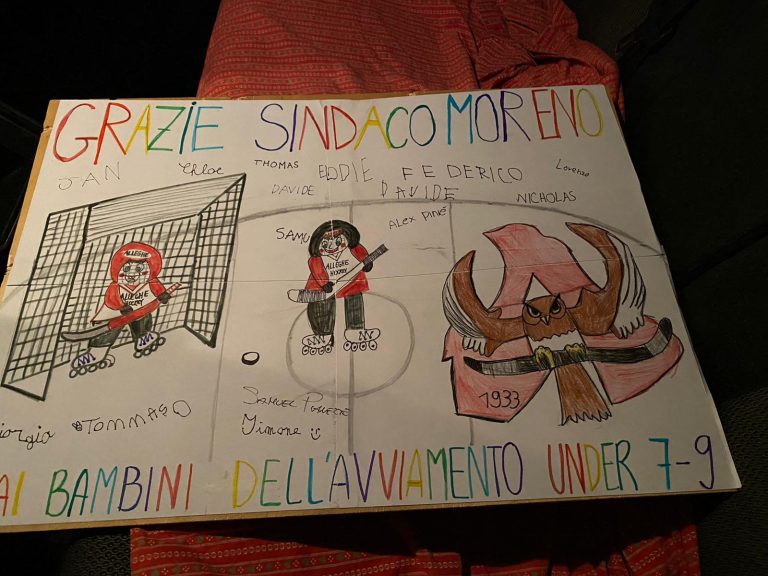 GRAZIE SINDACO MORENO
JAN Chloe THOMAS EDDIE FEDERICO Lorenzo
DAVIDE DAVIDE NICHOLAS
SAMU ALEX
ALLEGHE
ALLEGHE
HOCKEY
ALLEGHE
HOCKEY
1933
SAMUEL
iorgio TOMMASO
Simone
AI BAMBINI DELL'AVVIAMENTO UNDER 7-9